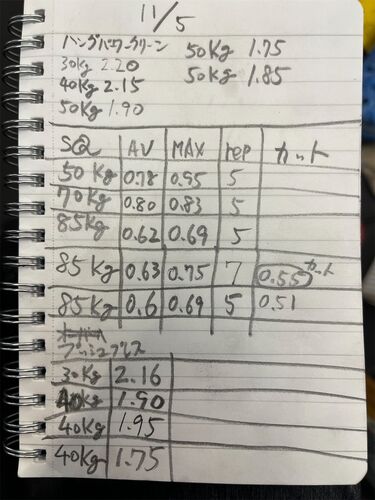 11/5
ハングパワークリーン
30kg 2.20
40kg 2.15
50kg 1.90
50kg 1.75
50kg 1.85
SQ AV MAX rep カット
50kg 0.78 0.95 5
70kg 0.80 0.83 5
85kg 0.62 0.69 5
85kg 0.63 0.75 7 0.55 カット
85kg 0.6 0.69 5 0.51
プッシュプレス
30kg 2.16
40kg 1.90
40kg 1.95
40kg 1.75